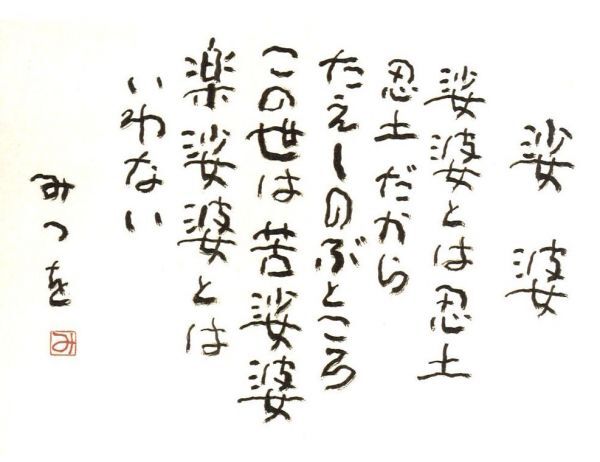 娑婆
娑婆とは忍土
忍土だから
たえしのぶところ
この世は苦娑婆
楽娑婆とは
いわない
みつを
み